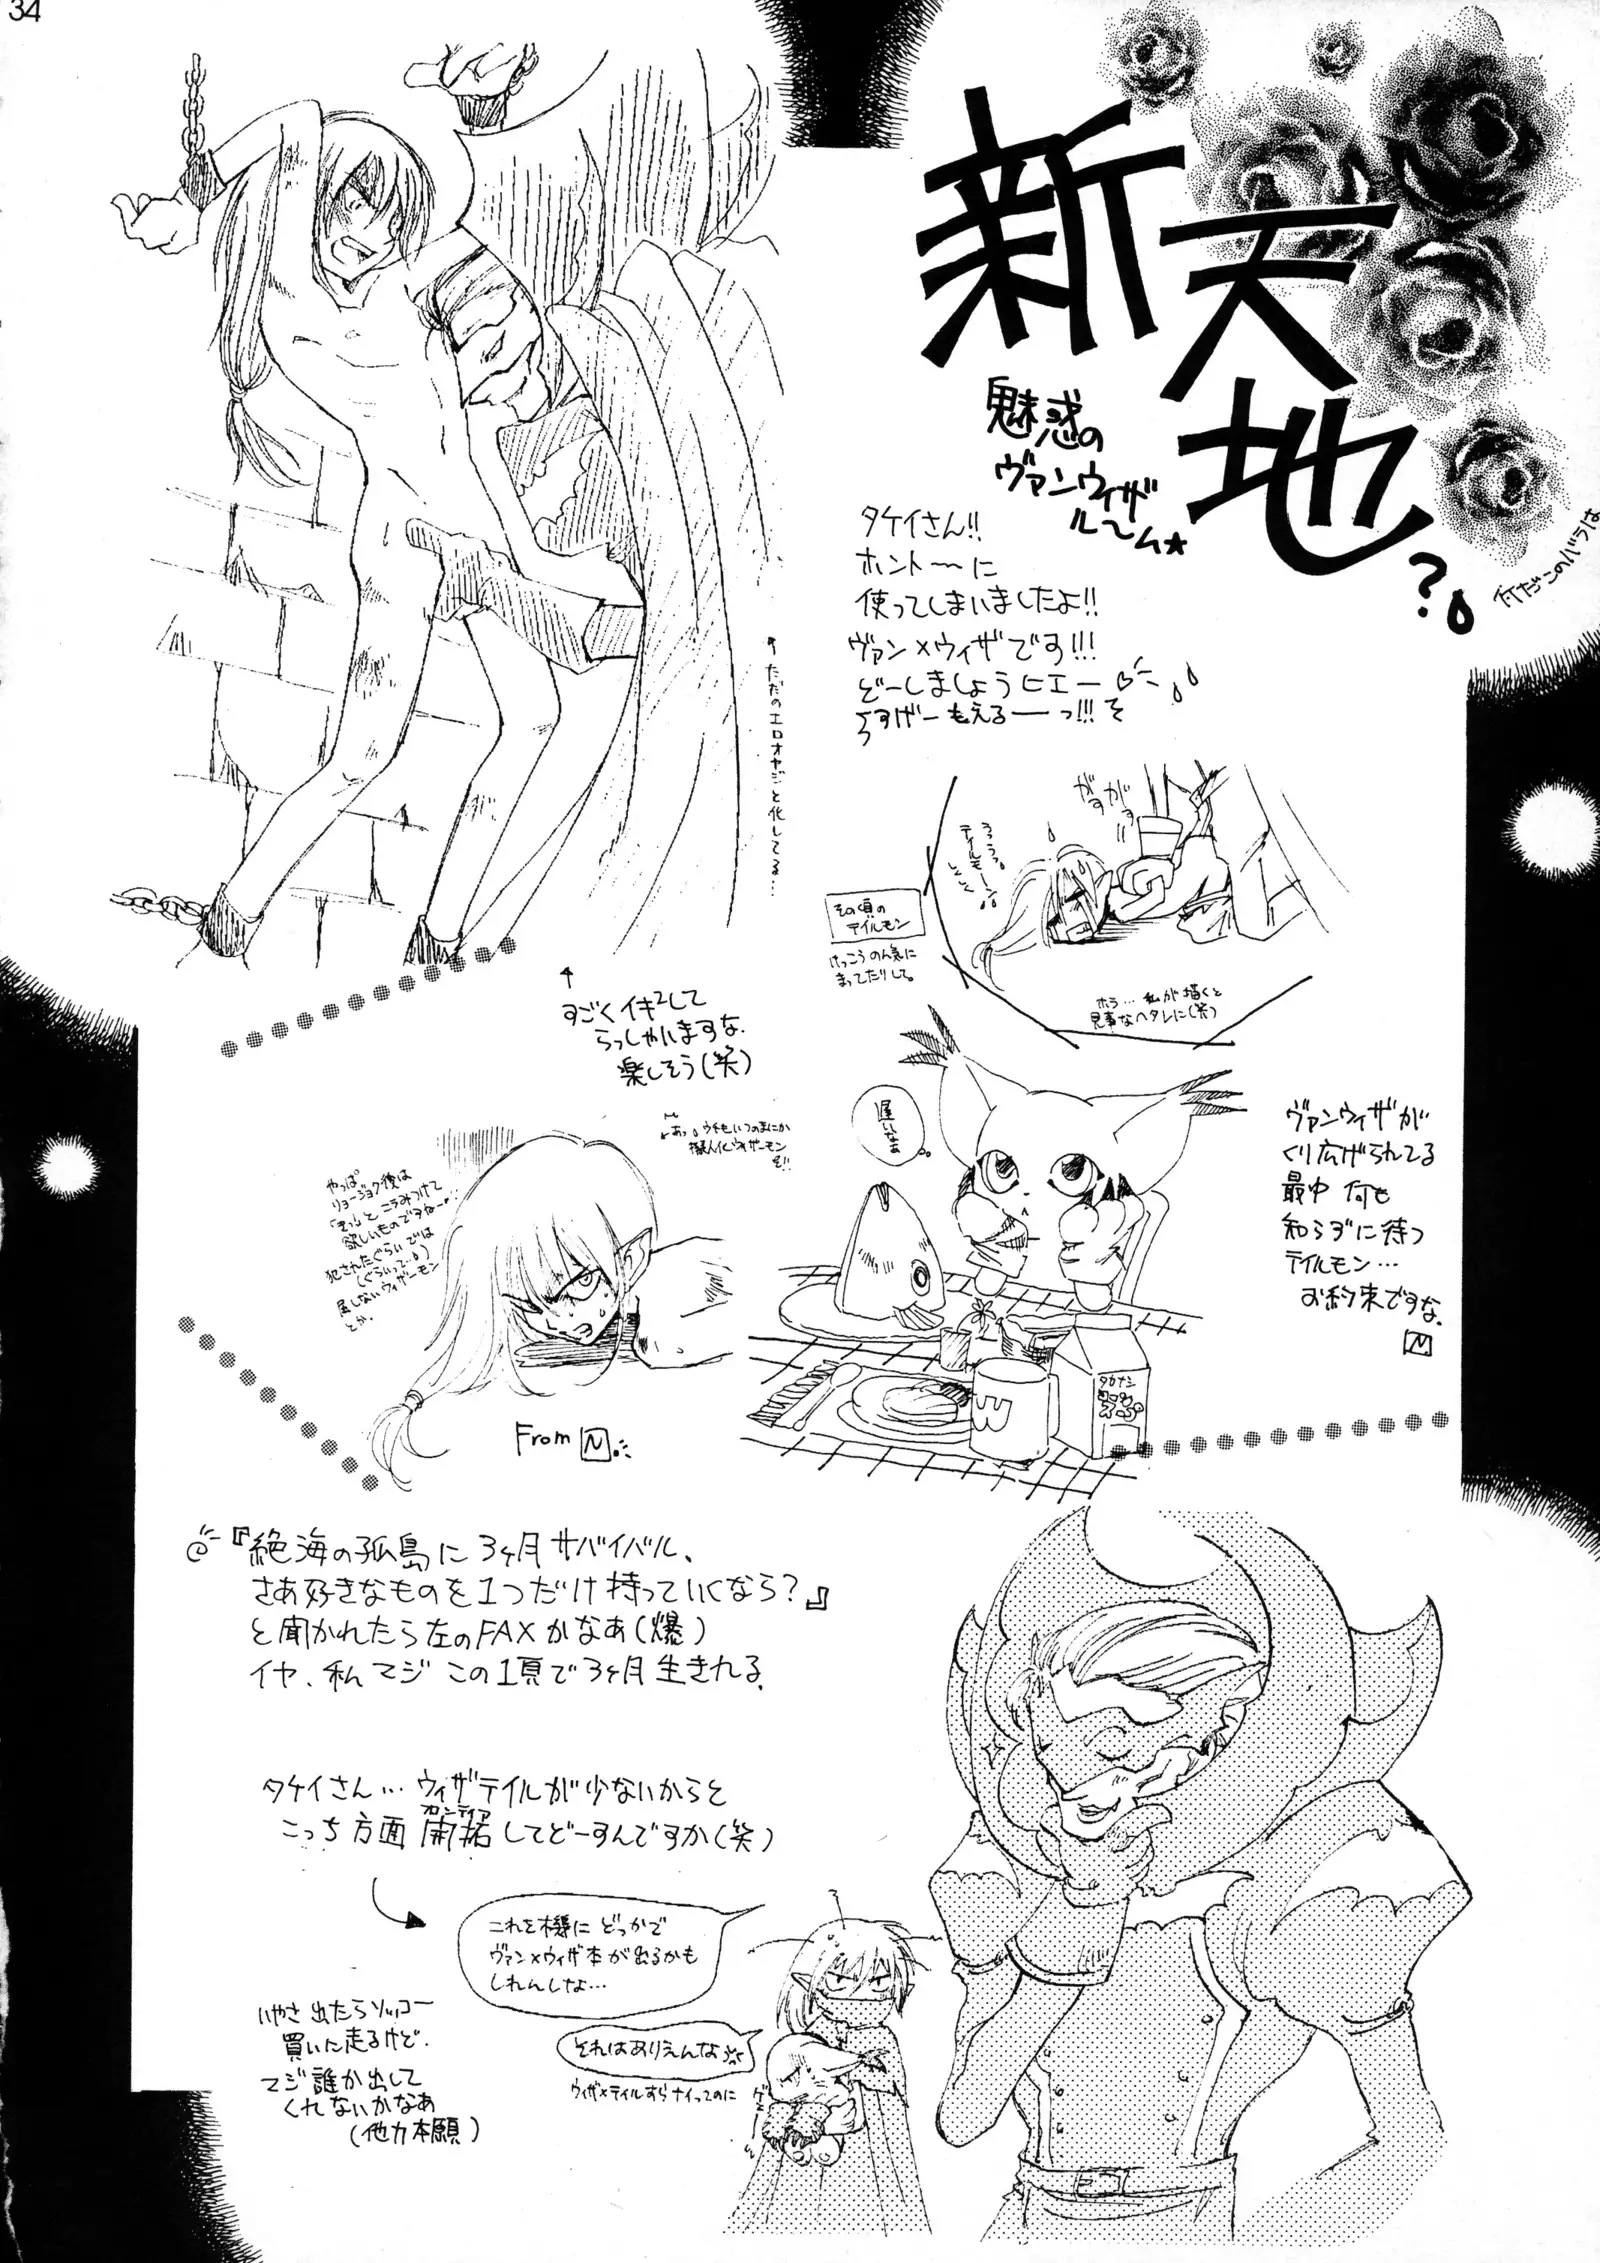 34
新天地?
魅惑の
ヴァンウィザ
ル〜ム★
何だこのバラは
タケイさん!!
ホント〜に
使ってしまいましたよ!!
ヴァン×ウィザです!!!
どーしましょうヒエー
うすげーもえるーっ!!!
←ただのエロオヤジと化してる…
↑
すごくイキ²して
らっしゃいますな。
楽しそう(笑)
がすがす
ううう
テイルモーン
その頃の
テイルモン
けっこうのん気に
まってたりして。
ホラ…私が描くと
見事なヘタレに(笑)
遅いなぁ
ヴァンウィザが
くり広げられてる
最中 何も
知らずに待つ
テイルモン…
お約束ですな。
N
タカナシ
あっ ウチもいつのまにか
擬人化ウィザーモン
だ!!
やっぱ
リョージョク後は
「きっ」とこうみつけて
欲しいものですねー
犯されたぐらいでは
(ぐらいって…)
屈しないウィザーモン
とか。
From N
『絶海の孤島に3ヶ月サバイバル、
さあ好きなものを1つだけ持っていくなら?』
と聞かれたら左のFAXかなあ(爆)
イヤ、私マジこの1頁で3ヶ月生きれる。
タケイさん…ウィザテイルが少ないからと
こっち方面開拓してどーすんですか(笑)
これを機に どっかで
ヴァン×ウィザ本が出るかも
しれんしな…
それはありえんな
ウィザ×テイルすらナイってのに
いやさ 出たらソッコー
買いに走るけど。
マジ誰か出して
くれないかなあ
(他力本願)